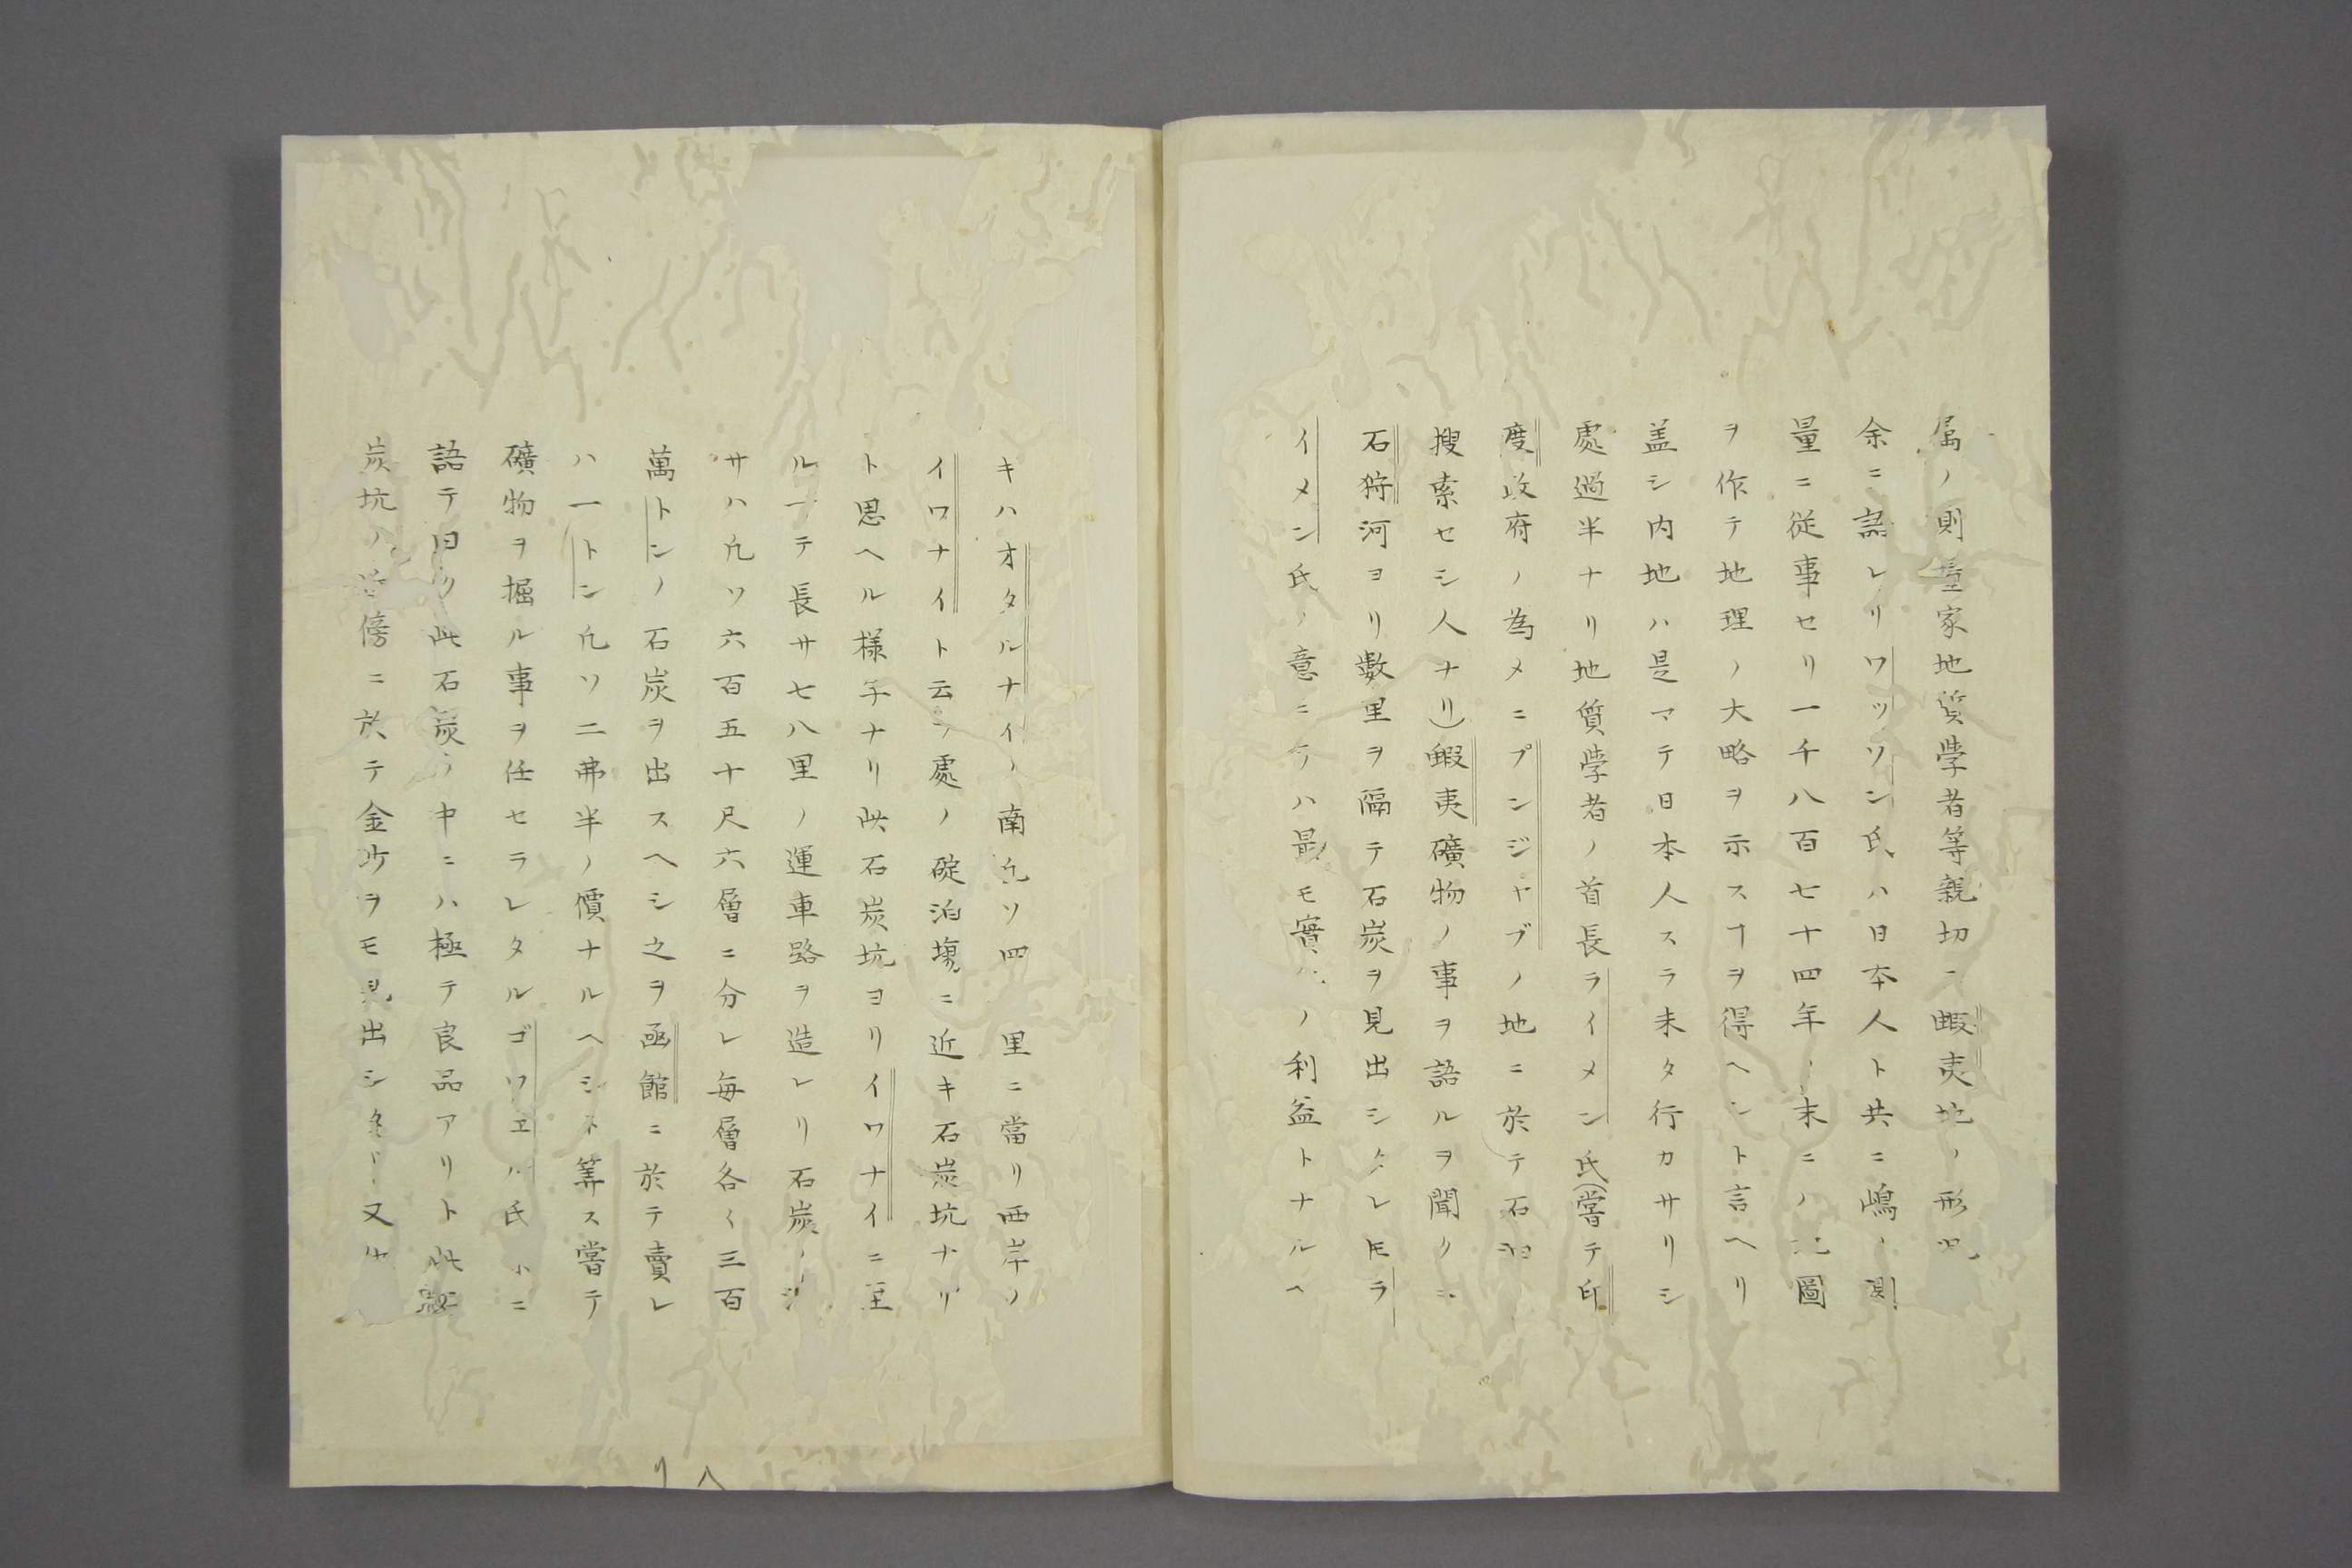 属ノ測量家地質学者等親切ニ蝦夷地ノ形況
余ニ語レリワッソン氏ハ日本人ト共ニ嶋ノ測
量ニ従事セリ一千八百七十四年ノ末ニハ圖
ヲ作テ地理ノ大略ヲ示スヿヲ得ヘシト言ヘリ
盖シ内地ハ是マテ日本人スラ未タ行カサリシ
處過半ナリ地質学者ノ首長ライメン氏(嘗テ印
度政府ノ為メニプンジヤブノ地ニ於テ石油
搜索セシ人ナリ)蝦夷礦物ノ事ヲ語ルヲ聞クニ
石狩河ヨリ數里ヲ隔テ石炭ヲ見出シタレ𪜈ラ
イメン氏ノ意ニテハ最モ實ノ利益トナルヘ
キハオタルナイノ南凡ソ四里ニ當リ西岸ノ
イワナイト云フ處ノ碇泊塲ニ近キ石炭坑ナリ
ト思ヘル様子ナリ此石炭坑ヨリイワナイニ至
ルーテ長サ七八里ノ運車路ヲ造レリ石炭ノ
サハ凡ソ六百五十尺六層ニ分レ毎層各〱三百
萬トンノ石炭ヲ出スヘシ之ヲ函館ニ於テ賣レ
ハ一トン凡ソ二弗半ノ價ナルヘシト筭ス嘗テ
礦物ヲ掘ル事ヲ任セラレタルゴワエル氏ハニ
語テ曰ク此石炭ノ中ニハ極テ良品アリト此
炭坑ノ近傍ニ於テ金沙ヲモ見出シタリ又
八
リ